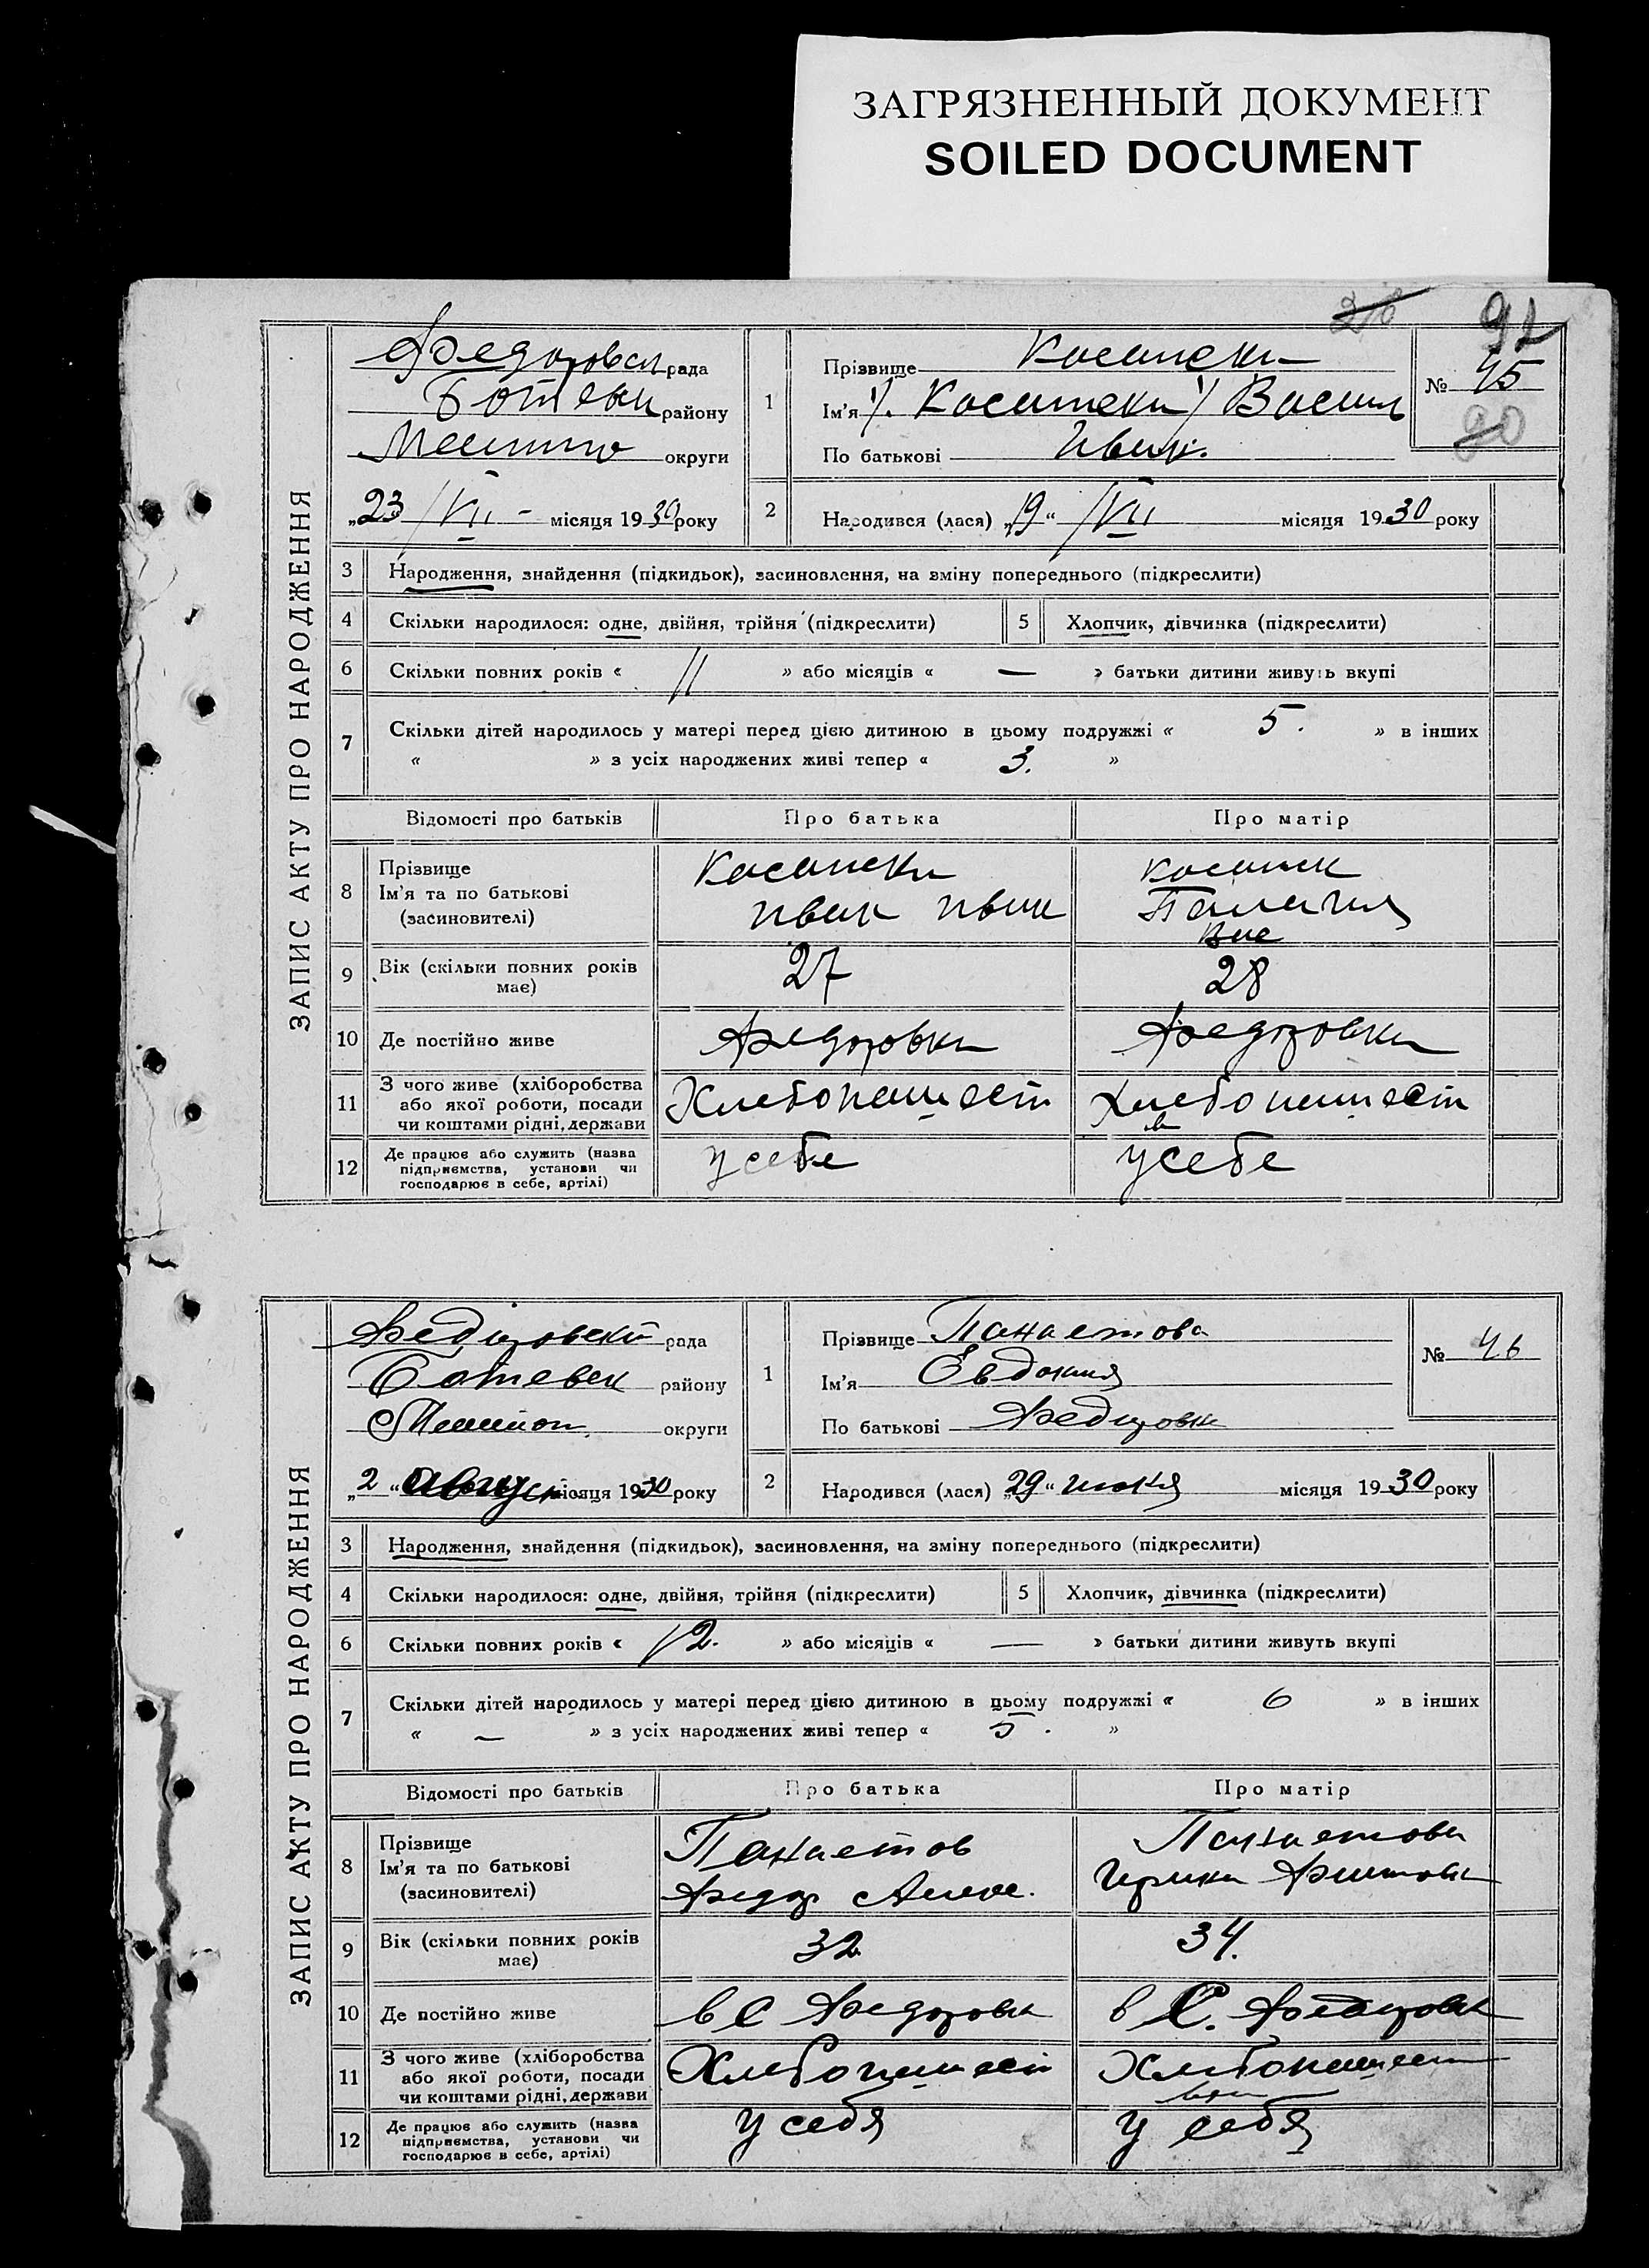 ЗАГРЯЗНЕННЫЙ ДОКУМЕНТ
SOILED DOCUMENT
92
ЗАПИС АКТУ ПРО НАРОДЖЕННЯ
рада
району
округи
„23 /VII - місяця 1930 року
1
Прізвище
Ім'я Васил
По батькові Иван.
№ 45
90
2
Народився (лася) „19“ /VII місяця 1930 року
3 Народження, знайдення (підкидьок), засиновлення, на зміну попереднього (підкреслити)
4 Скільки народилося: одне, двійня, трійня (підкреслити) 5 Хлопчик, дівчинка (підкреслити)
6 Скільки повних років « 11 » або місяців « — » батьки дитини живуть вкупі
7 Скільки дітей народилось у матері перед цією дитиною в цьому подружжі « 5. » в інших
« » з усіх народжених живі тепер « 3. »
Відомості про батьків Про батька Про матір
8 Прізвище
Ім'я та по батькові Иван Иван
(засиновителі)
9 Вік (скільки повних років має) 27 28
10 Де постійно живе Федоровка Федоровка
11 З чого живе (хліборобства
або якої роботи, посади
чи коштами рідні, держави Хлебопашест Хлебопашест
в
12 Де працює або служить (назва
підприємства, установи чи
господарює в себе, артілі) у себе у себе
ЗАПИС АКТУ ПРО НАРОДЖЕННЯ
рада
Ботевск району
округи
„2“ август місяця 1930 року
1
Прізвище Панаетова
Ім'я Евдокия
По батькові Федоровн
№ 46
2
Народився (лася) „29“ июля місяця 1930 року
3 Народження, знайдення (підкидьок), засиновлення, на зміну попереднього (підкреслити)
4 Скільки народилося: одне, двійня, трійня (підкреслити) 5 Хлопчик, дівчинка (підкреслити)
6 Скільки повних років « 12. » або місяців « — » батьки дитини живуть вкупі
7 Скільки дітей народилось у матері перед цією дитиною в цьому подружжі « 6 » в інших
« — » з усіх народжених живі тепер « 5. »
Відомості про батьків Про батька Про матір
8 Прізвище Панаетов Панаетова
Ім'я та по батькові Федор
(засиновителі)
9 Вік (скільки повних років має) 32 34.
10 Де постійно живе в С Федоровк в С. Федоровк
11 З чого живе (хліборобства
або якої роботи, посади
чи коштами рідні, держави Хлебопашест Хлебопашест
12 Де працює або служить (назва
підприємства, установи чи
господарює в себе, артілі) у себя у себя